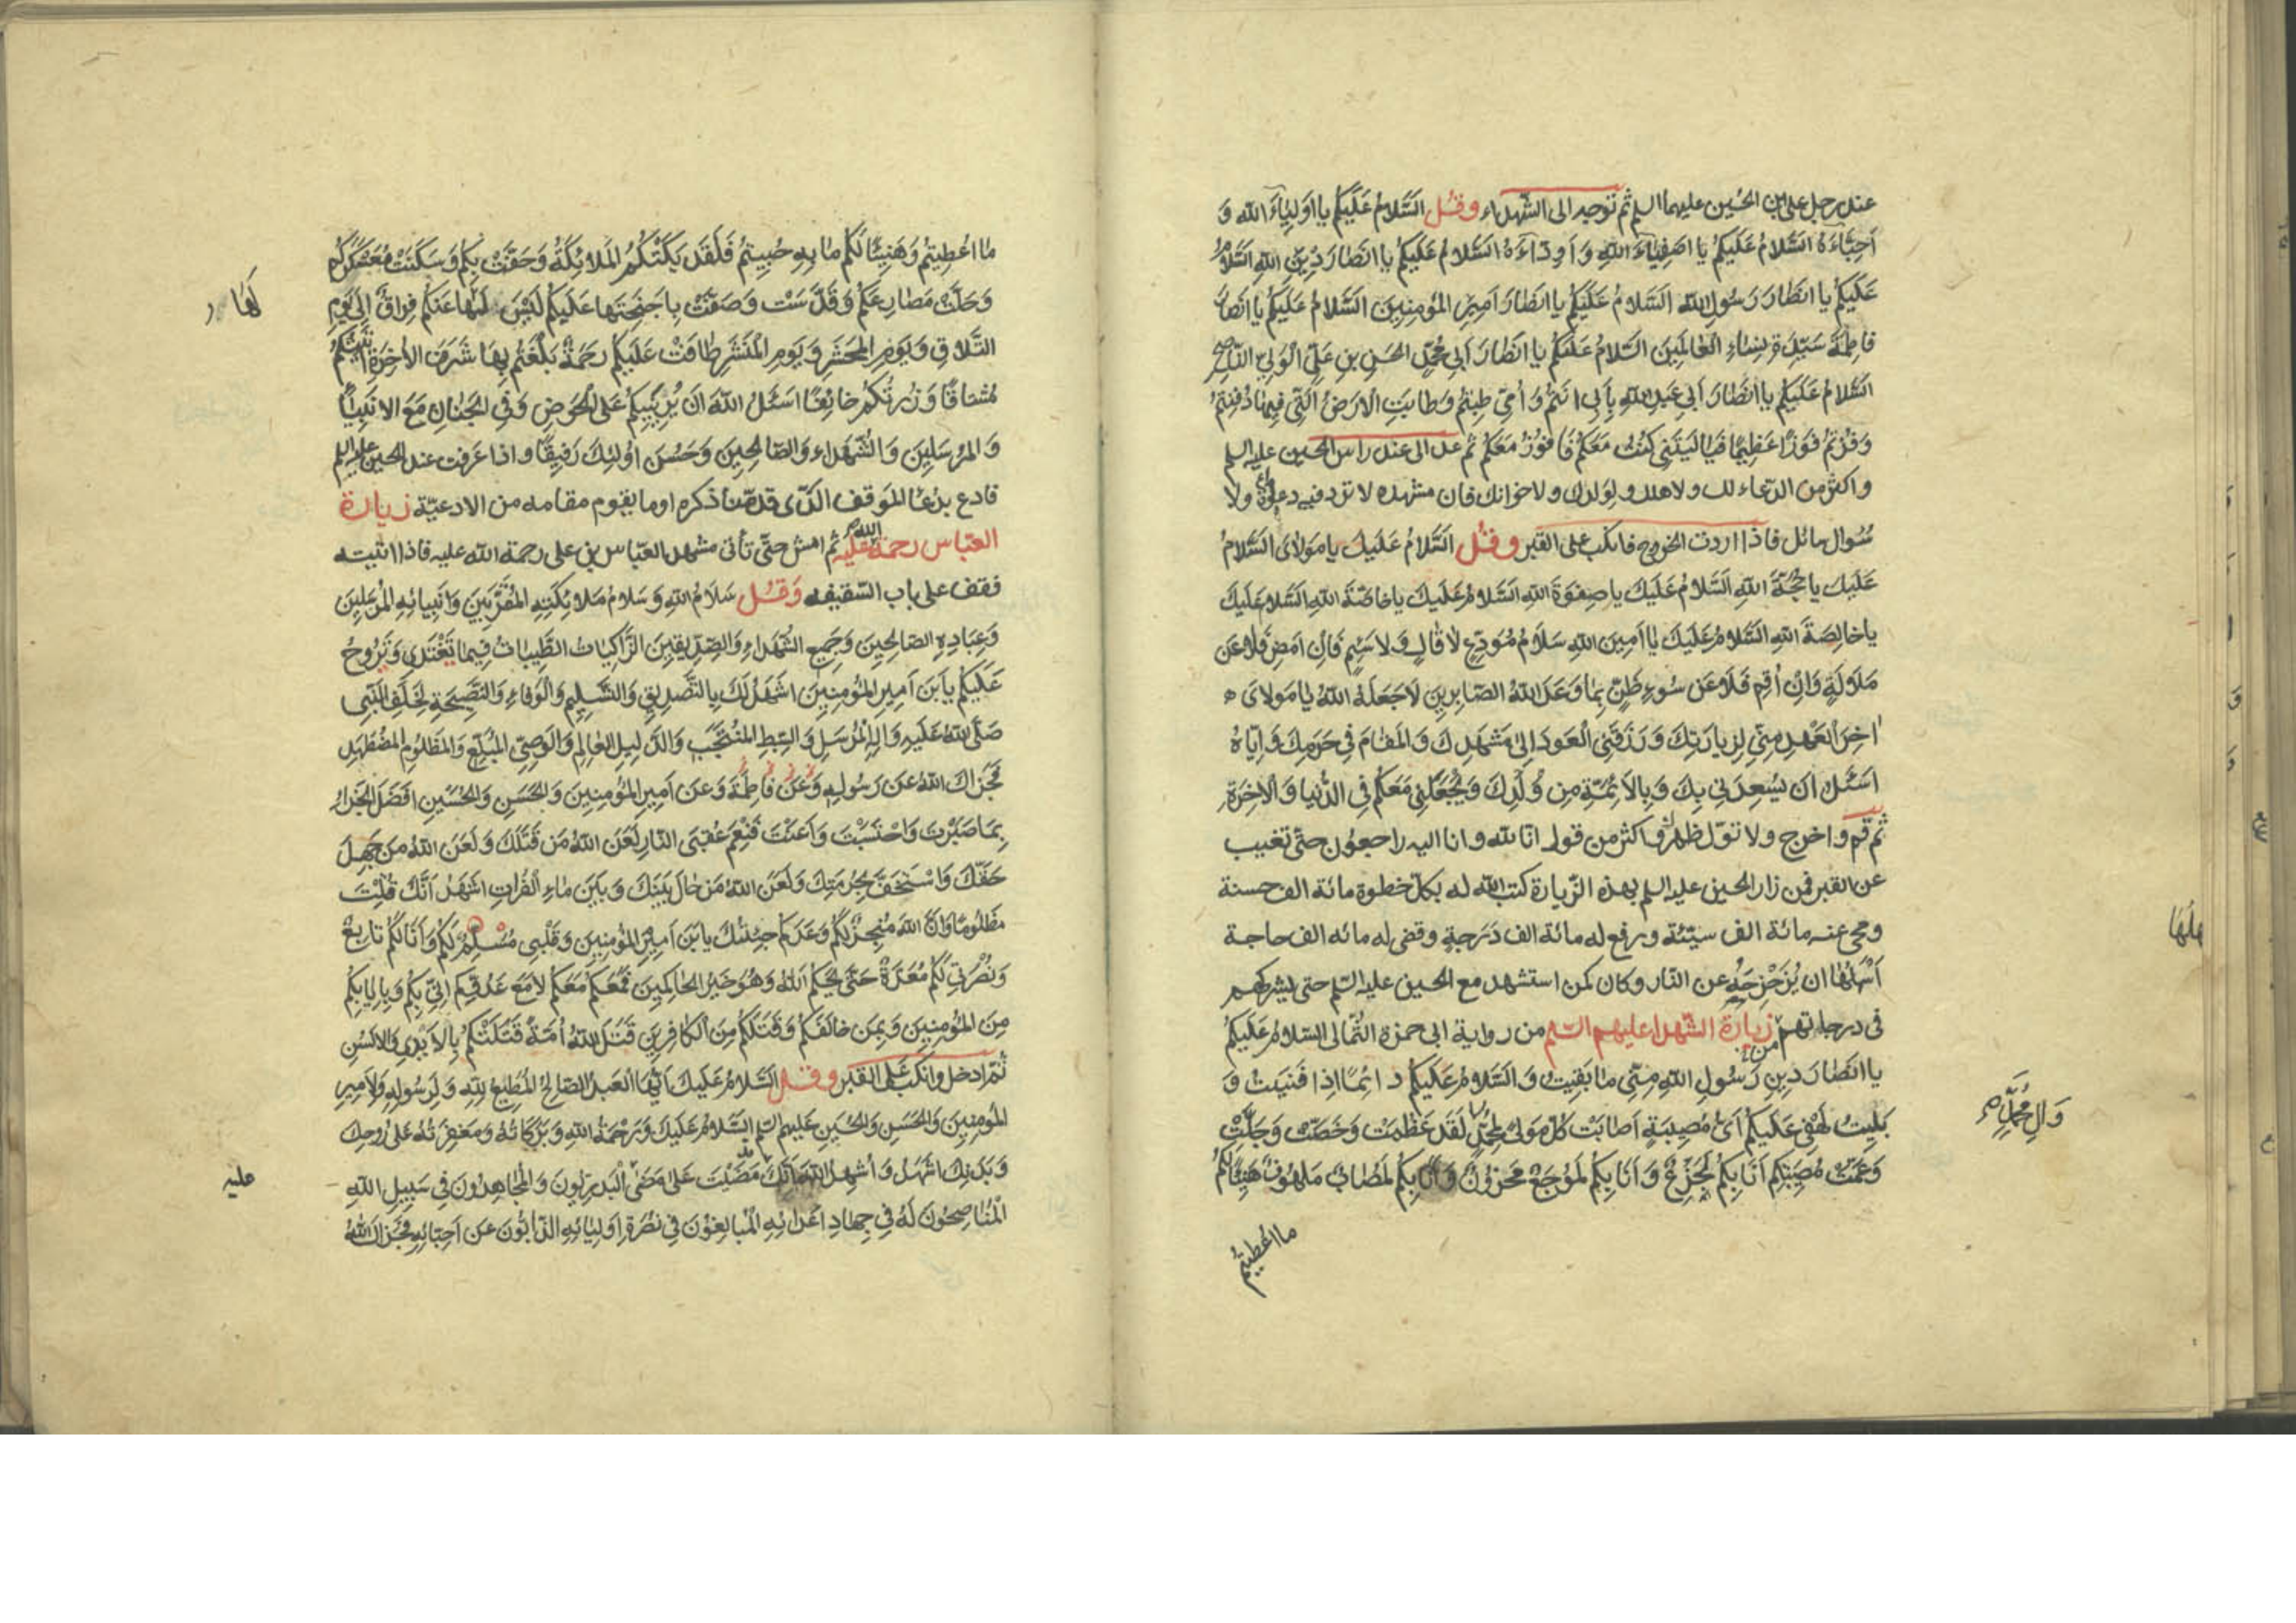 عند رجل علی ابن الحُسین علیهما السلم ثم توجه الی الشهداء وقُل السَّلامُ عَلَیکُم یا اَولِیٰاءَ اللّٰه وَ
اَحِبّٰاءَهُ السَّلامُ عَلَیکُم یا اَصفِیٰاءَ اللّٰهِ وَ اَوِدّٰاءَهُ السَّلامُ عَلَیکُم یا اَنصٰارَ دِینِ اللّٰهِ السَّلامُ
عَلَیکُم یا اَنصٰارَ رَسُولِ اللّٰه السَّلامُ عَلَیکُم یا اَنصٰارَ اَمیرِ المُؤمِنینَ السَّلامُ عَلَیکُم یا اَنصٰارَ
فاطِمَةَ سَیِّدَةِ نِسٰاءِ العٰالَمینَ السَّلامُ عَلَیکُم یا اَنصٰارَ اَبی مُحَمَّدٍ الحَسَنِ بنِ عَلِیٍّ الوَلِیِّ النّٰاصِحِ
السَّلامُ عَلَیکُم یا اَنصٰارَ اَبی عَبدِ اللّٰهِ بِاَبی اَنتُم وَ اُمّی طِبتُم وَ طابَتِ الاَرضُ الَّتی فیهٰا دُفِنتُم
وَ فُزتُم فَوزًا عَظیمًا فَیٰا لَیتَنی کُنتُ مَعَکُم فَاَفُوزُ مَعَکُم ثم عد الی عند راس الحسین علیه السلم
و اکثر من الدعاء لک ولاهلک ولوَلَدِک ولاخوانک فان مشهده لا ترد فیه دعوة ولا
سُوال سائل فاذا اردت الخروج فانکب علی القبر وقُل السَّلامُ عَلَیکَ یا مَولاٰیَ السَّلامُ
عَلَیکَ یا حُجَّةَ اللّٰهِ السَّلامُ عَلَیکَ یا صِفوَةَ اللّٰهِ السَّلامُ عَلَیکَ یا خاصَّةَ اللّٰهِ السَّلامُ عَلَیکَ
یا خالِصَةَ اللّٰهِ السَّلامُ عَلَیکَ یا اَمینَ اللّٰهِ سَلامَ مُوَدِّعٍ لا قالٍ وَ لا سَئِمٍ فَاِن اَمضِ فَلا عَن
مَلالَةٍ وَ اِن اُقِم فَلا عَن سُوءِ ظَنٍّ بِمٰا وَعَدَ اللّٰهُ الصّٰابِرینَ لا جَعَلَهُ اللّٰهُ یٰا مَولاٰیَ
اٰخِرَ العَهدِ مِنّی لِزِیارَتِکَ وَ رَزَقَنِی العَودَ اِلیٰ مَشهَدِکَ وَ المَقٰامَ فی حَرَمِکَ وَ اِیّٰاهُ
اَسئَلُ اَن یُسعِدَنی بِکَ وَ بِالاَئِمَّةِ مِن وُلدِکَ وَ یَجعَلَنی مَعَکُم فِی الدُّنیا وَ الاٰخِرَةِ
ثم قم واخرج ولا تولّ ظهرک واکثر من قول انا للّٰه وانا الیه راجعون حتی تغیب
عن القبر فمن زار الحسین علیه السلم بهذه الزیارة کتب اللّٰه له بکل خطوة مائة الف حسنة
ومحی عنه مائة الف سیئة ورفع له مائة الف دَرَجة وقضی له مائه الف حاجة
اَسهَلُهٰا ان یُزَحزِحَه عن النّار وکان کمن استشهد مع الحسین علیه السلم حتی یشرکهم
فی درجاتهم زیارة الشهدا علیهم السلم من روایة ابی حمزه الثُّمالی السلامُ عَلَیکُم
یا اَنصٰارَ دینِ رَسُولِ اللّٰهِ مِنّی مٰا بَقیتُ وَ السَّلامُ عَلَیکُم دائِمًا اِذا فَنیتُ وَ
بَلیتُ لَهفی عَلَیکُم اَیُّ مُصیبَةٍ اَصٰابَت کُلَّ مَولًی لِمُحَمَّدٍ لَقَد عَظُمَت وَ خَصَّت وَ جَلَّت
وَ عَمَّت مُصیبَتُکُم اَنَا بِکُم لَجَزِعٌ وَ اَنَا بِکُم لَمُوجَعٌ مَحزُونٌ وَ اَنَا بِکُم لَمُصٰابٌ مَلهُوفٌ هَنیئًا لَکُم
وَ اٰلِ مُحَمَّدٍ
ما اُعطیتُم
مٰا اُعطیتُم وَ هَنیئًا لَکُم مٰا بِهِ حُبیتُم فَلَقَد بَکَتکُمُ المَلائِکَةُ وَ حَفَّت بِکُم وَ سَکَنَت مُعَسکَرَکُم
وَ حَلَّت مَصٰارِعَکُم وَ قَدَّسَت وَ صَفَّت بِاَجنِحَتِها عَلَیکُم لَیسَ لَهٰا عَنکُم فِراقٌ اِلیٰ یَومِ
التَّلاقِ وَ یَومِ المَحشَرِ وَ یَومِ المَنشَرِ طٰافَت عَلَیکُم رَحمَةٌ بَلَغتُم بِهٰا شَرَفَ الاٰخِرَةِ اَتَیتُکُم
مُشتاقًا وَ زُرتُکُم خائِفًا اَسئَلُ اللّٰهَ اَن یُرِیَنیکُم عَلَی الحَوضِ وَ فِی الجِنٰانِ مَعَ الاَنبِیٰاءِ
وَ المُرسَلینَ وَ الشُّهَداء وَ الصّالِحینَ وَ حَسُنَ اُولئِکَ رَفیقًا واذا عرفت عند الحسین علیه السلم
فادع بدُعٰا المَوقف الذی قدمنا ذکره او ما یقوم مقامه من الادعیّة زیارة
العبّاس رحمة اللّٰه علیه ثم امش حتّی تأتی مشهد العبّاس بن علی رحمة اللّٰه علیه فاذا اتیته
فقف علی باب السّقیفه وَقُل سَلامُ اللّٰهِ وَ سَلامُ مَلائِکَتِهِ المُقَرَّبینَ وَ اَنبِیائِهِ المُرسَلینَ
وَ عِبادِهِ الصّالِحینَ وَ جَمیعِ الشُّهَداءِ وَ الصِّدّیقینَ الزّاکِیاتُ الطَّیِّباتُ فیمٰا تَغتَدی وَ تَرُوحُ
عَلَیکُم یَا بنَ اَمیرِ المُؤمِنینَ اَشهَدُ لَکَ بِالتَّصدیقِ وَ التَّسلیمِ وَ الوَفٰاءِ وَ النَّصیحَةِ لِخَلَفِ النَّبی
صَلَّی اللّٰهُ عَلَیهِ وَ اٰلِهِ المُرسَلِ وَ السِّبطِ المُنتَجَبِ وَ الدَّلیلِ العٰالِمِ وَ الوَصِیِّ المُبَلِّغِ وَ المَظلُومِ المُضطَهَدِ
فَجَزٰاکَ اللّٰهُ عَن رَسُولِهِ وَ عَن فاطِمَةَ وَ عَن اَمیرِ المُؤمِنینَ وَ الحَسَنِ وَ الحُسَینِ اَفضَلَ الجَزاءِ
بِمٰا صَبَرتَ وَ احتَسَبتَ وَ اَعَنتَ فَنِعمَ عُقبَی الدّٰارِ لَعَنَ اللّٰهُ مَن قَتَلَکَ وَ لَعَنَ اللّٰهُ مَن جَهِلَ
حَقَّکَ وَ استَخَفَّ بِحُرمَتِکَ وَ لَعَنَ اللّٰهُ مَن حٰالَ بَینَکَ وَ بَینَ مٰاءِ الفُراتِ اَشهَدُ اَنَّکَ قُتِلتَ
مَظلُومًا وَ اَنَّ اللّٰهَ مُنجِزٌ لَکُم وَعَدَکُم جِئتُکَ یابنَ اَمیرِ المُؤمِنینَ وَ قَلبی مُسَلِّمٌ لَکُم وَ اَنَا لَکُم تابِعٌ
وَ نُصرَتی لَکُم مُعَدَّةٌ حَتّٰی یَحکُمَ اللّٰهُ وَ هُوَ خَیرُ الحٰاکِمینَ فَمَعَکُم مَعَکُم لا مَعَ عَدُوِّکُم اِنّی بِکُم وَ بِاِیٰابِکُم
مِنَ المُؤمِنینَ وَ بِمَن خالَفَکُم وَ قَتَلَکُم مِنَ الکٰافِرینَ قَتَلَ اللّٰهُ اُمَّةً قَتَلَتکُم بِالاَیدی وَ الاَلسُنِ
ثُمّ ادخل وانکب علی القبر وقل السَّلامُ عَلَیکَ اَیُّهَا العَبدُ الصّالِحُ المُطیعُ لِلّٰهِ وَ لِرَسُولِهِ وَ لِاَمیرِ
المُؤمِنینَ وَ الحَسَنِ وَ الحُسَینِ عَلَیهِم السّلم السَّلامُ عَلَیکَ وَ رَحمَةُ اللّٰهِ وَ بَرَکاتُهُ وَ مَغفِرَتُهُ عَلیٰ رُوحِکَ
وَ بَدَنِکَ اَشهَدُ وَ اُشهِدُ اللّٰهَ اَنَّکَ مَضَیتَ عَلیٰ مٰا مَضیٰ البَدرِیُّونَ وَ المُجٰاهِدُونَ فی سَبیلِ اللّٰهِ
المُنٰاصِحُونَ لَهُ فی جِهادِ اَعدائِهِ المُبٰالِغُونَ فی نُصرَةِ اَولِیٰائِهِ الذّٰابُّونَ عَن اَحِبّائِهِ فَجَزاکَ اللّٰهُ
لَهٰا
علیه